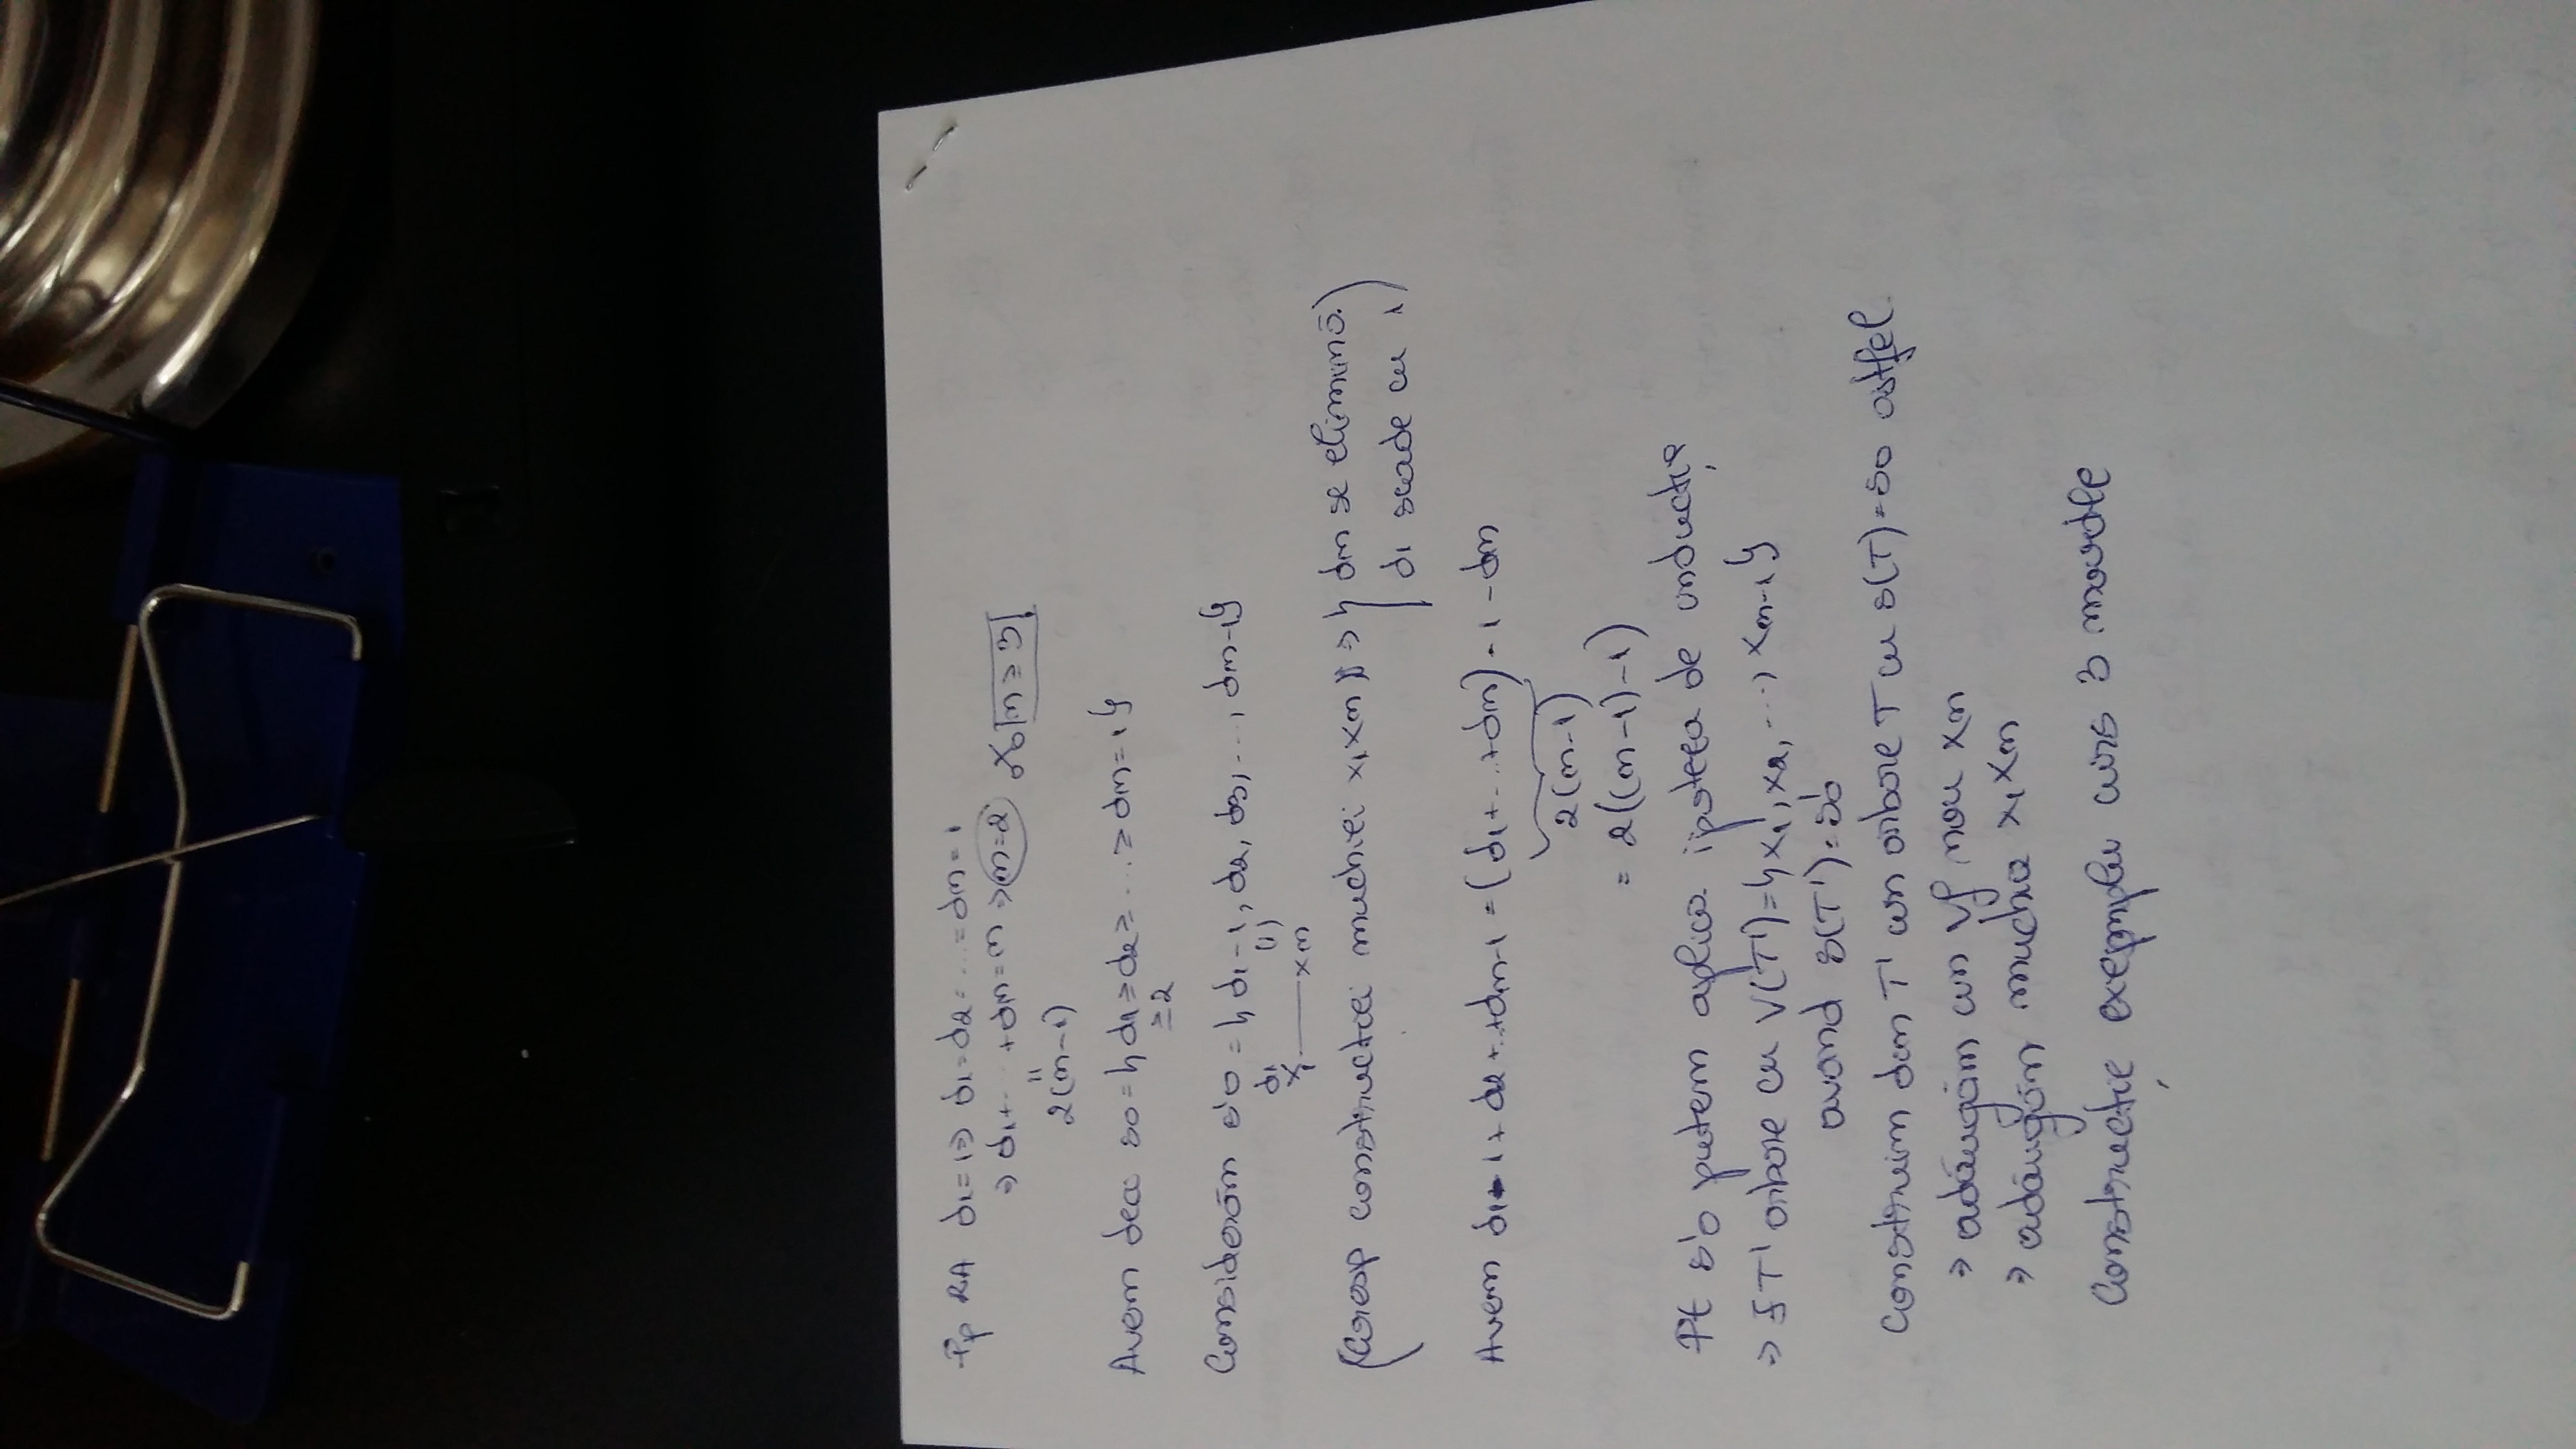 Pp RA d1=1⇒ d1=d2=...=dn=1
⇒ d1+...+dn=n ⇒ n=2 ※ n≥3
"
2(n-1)
Avem deci s0={d1≥d2≥...≥dn=1}
≥2
Considerăm s'0 = {d1-1, d2, d3, ..., dn-1}
d1 (1)
x1 —— xn
(Coresp construcției muchiei x1xn) ⇒ { dn se elimină
d1 scade cu 1)
Avem d1-1+d2+...+dn-1 = (d1+...+dn)-1-dn
2(n-1)
= 2((n-1)-1)
Pt s'0 putem aplica ipoteza de inducție
⇒ ∃ T' arbore cu V(T')={x1, x2, ..., xn-1}
avand s(T')=s'0
Construim din T' un arbore T cu s(T)=s0 astfel
⇒ adăugăm un vf nou xn
⇒ adăugăm muchia x1xn
Construcție exemplu curs 3 moodle